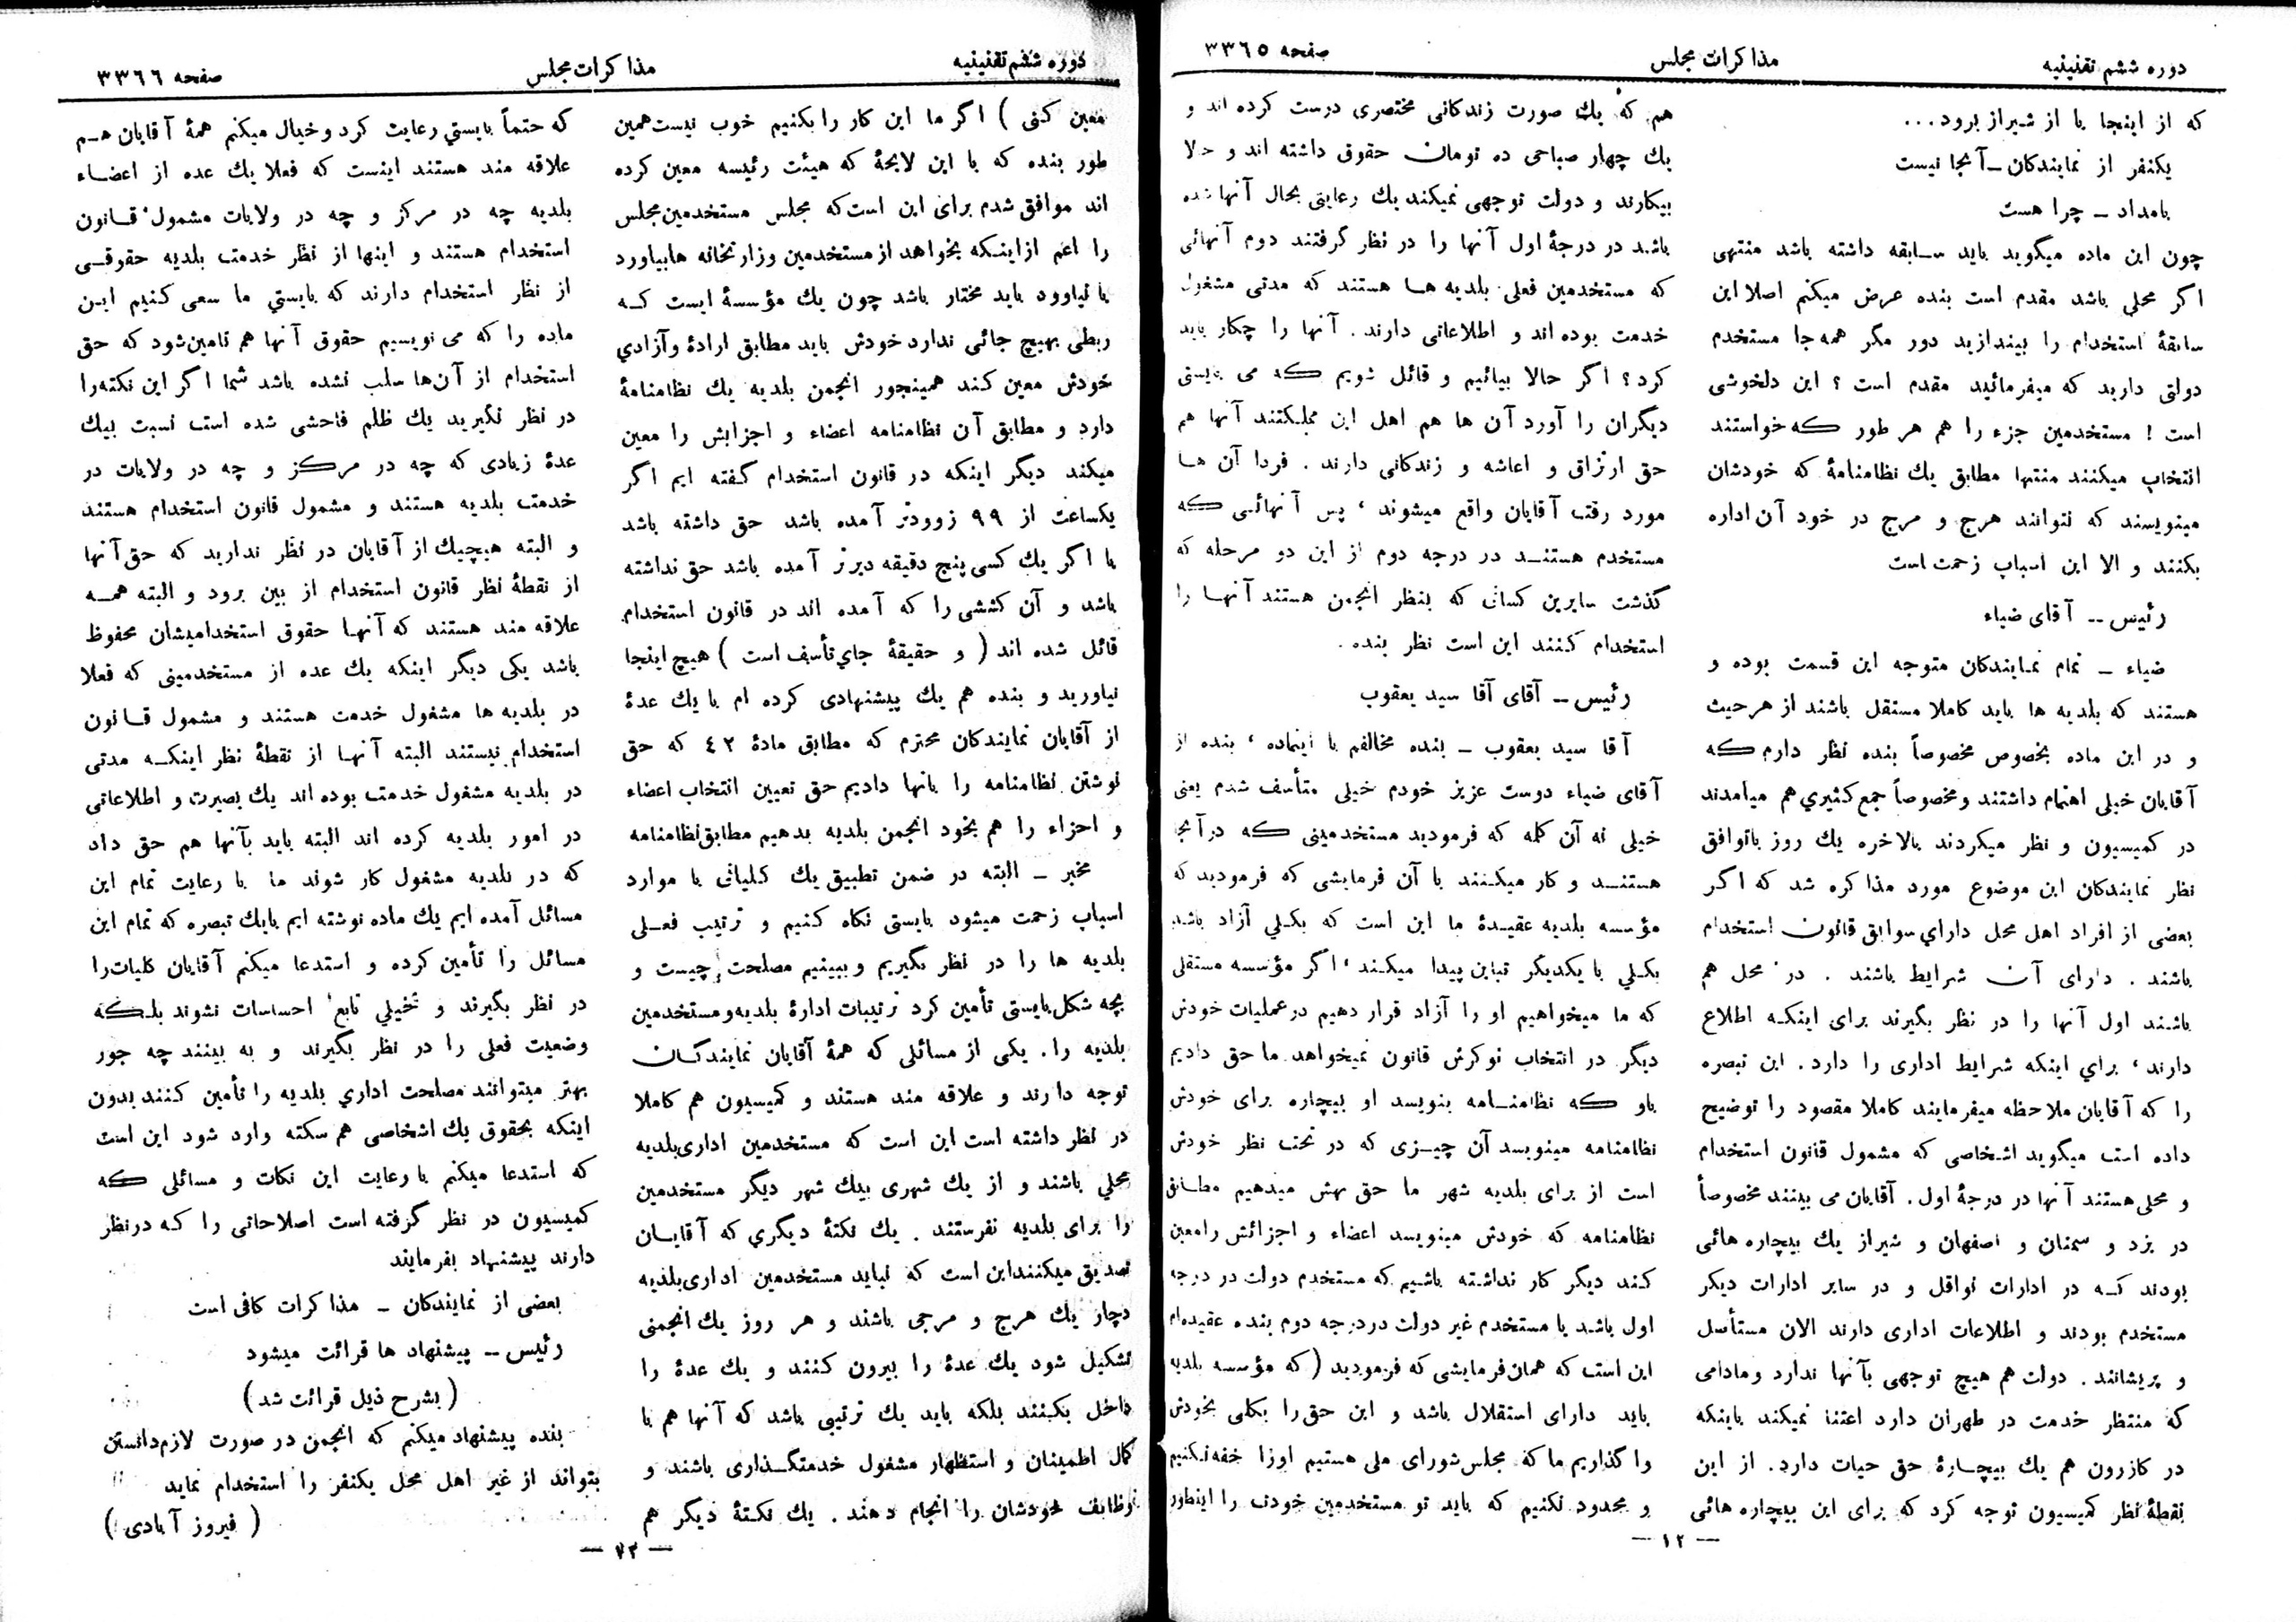 دوره ششم تقنینیه
مذاکرات مجلس
صفحه ۳۳٦٥
که از اینجا یا از شیراز برود...
یکنفر از نمایندکان ـ آنجا نیست
بامداد ـ چرا هست
چون این ماده میگوید باید سـابقه داشته باشد منتهی
اگر محلی باشد مقدم است بنده عرض میکنم اصلا این
سابقهٔ استخدام را بیندازید دور مگر همه جا مستخدم
دولتی دارید که میفرمائید مقدم است ؟ این دلخوشی
است ! مستخدمین جزء را هم هر طور که خواستند
انتخاب میکنند منتها مطابق یك نظامنامهٔ که خودشان
مینویسند که نتوانند هرج و مرج در خود آن اداره
بکنند و الا این اسباب زحمت است
رئیس -- آقای ضیاء
ضیاء ـ تمام نمـایندکان متوجه این قسمت بوده و
هستند که بلدیه ها باید کاملا مستقل باشند از هر حیث
و در این ماده بخصوص مخصوصاً بنده نظر دارم که
آقایان خیلی اهتمام داشتند و مخصوصاً جمع کثیري هم میامدند
در کمیسیون و نظر میکردند بالاخره یك روز باتوافق
نظر نمایندکان این موضوع مورد مذاکره شد که اگر
بعضی از افراد اهل محل داراي سوابق قانون استخدام
باشند . دارای آن شرایط باشند . در محل هم
باشند اول آنها را در نظر بگیرند برای اینکـه اطلاع
دارند ، براي اینکه شرایط اداری را دارد . این تبصره
را که آقایان ملاحظه میفرمایند کاملا مقصود را توضیح
داده است میگوید اشخاصی که مشمول قانون استخدام
و محلی هستند آنها در درجهٔ اول . آقایان می بینند مخصوصاً
در یزد و سمنان و اصفهان و شیراز یك بیچاره هائی
بودند کـه در ادارات نواقل و در سایر ادارات دیکر
مستخدم بودند و اطلاعات اداری دارند الان مستأسل
و پریشانند . دولت هم هیچ توجهی بآنها ندارد ومادامی
که منتظر خدمت در طهران دارد اعتنا نمیکند باینکه
در کازرون هم یك بیچـارهٔ حق حیات دارد . از این
نقطهٔ نظر کمیسیون توجه کرد که برای این بیچاره هائی
هم که یك صورت زندکانی مختصری درست کرده اند و
یك چهار صباحی ده تومان حقوق داشته اند و حالا
بیکارند و دولت توجهی نمیکند یك رعایتی بحال آنها شده
باشد در درجهٔ اول آنها را در نظر گرفتند دوم آنهائی
که مستخدمین فعلی بلدیه هـا هستند که مدتی مشغول
خدمت بوده اند و اطلاعاتی دارند . آنها را چکار باید
کرد ؟ اگر حالا بیائیم و قائل شویم که می بایستی
دیگران را آورد آن ها هم اهل این مملکتند آنها هم
حق ارتزاق و اعاشه و زندکانی دارند . فردا آن هـا
مورد رقت آقایان واقع میشوند ، پس آنهائـی که
مستخدم هستنـد در درجه دوم از این دو مرحله که
گذشت سایرین کسانی که بنظر انجمن هستند آنهـا را
استخدام کنند این است نظر بنده .
رئیس -- آقای آقا سید یعقوب
آقا سید یعقوب ـ بنده مخالفم با اینماده ، بنده از
آقای ضیاء دوست عزیز خودم خیلی متأسف شدم یعنی
خیلی نه آن کلمه که فرمودید مستخدمینی که در آنجا
هستنـد و کار میکنند با آن فرمایشی که فرمودید که
مؤسسه بلدیه عقیـدهٔ ما این است که بکـلي آزاد باشد
بکـلي با یکدیگر تباین پیدا میکـند ، اگر مؤسسه مستقلی
که ما میخواهیم او را آزاد قرار دهیم در عملیات خودش
دیگر در انتخاب نوکرش قانون نمیخواهد ما حق دادیم
باو که نظامنـامه بنویسد او بیچاره برای خودش
نظامنامه مینویسد آن چیـزی که در تحت نظر خودش
است از برای بلدیه شهر ما حق بهش میدهیم مطـابق
نظامنامه که خودش مینویسد اعضاء و اجزائش را معین
کند دیگر کار نداشته باشیم که مستخدم دولت در درجه
اول باشد یا مستخدم غیر دولت در درجه دوم بنده عقیده ام
این است که همان فرمایشی که فرمودید (که مؤسسه بلدیه
باید دارای استقلال باشد و این حق را بکلی بخودش
واگذاریم ما که مجلس شورای ملی هستیم اورا خفه نکنیم
و محدود نکنیم که باید تو مستخدمین خودت را اینطور
— ۱۲ —
دوره ششم تقنینیه
مذاکرات مجلس
صفحه ۳۳٦٦
معین کنی ) اگر ما این کار را بکنیم خوب نیست همین
طور بنده که با این لایحهٔ که هیئت رئیسه معین کرده
اند موافق شدم برای این است که مجلس مستخدمین مجلس
را اعم از اینـکه بخواهد از مستخدمین وزارتخانه ها بیاورد
یا نیاورد باید مختار باشد چون یك مؤسسهٔ ایست کـه
ربطی بهیچ جائی ندارد خودش باید مطابق ارادهٔ وآزادي
خودش معین کند همینجور انجمن بلدیه یك نظامنامهٔ
دارد و مطابق آن نظامنامه اعضاء و اجزایش را معین
میکند دیگر اینکه در قانون استخدام گفته ایم اگر
یکساعت از ۹۹ زوودتر آمده باشد حق داشته باشد
یا اگر یك کسی پنج دقیقه دیرتر آمده باشد حق نداشته
باشد و آن کششی را که آمده اند در قانون استخدام
قائل شده اند ( و حقیقهٔ جاي تأسف است ) هیچ اینجا
نیاورید و بنده هم یك پیشنهادی کرده ام با یك عدهٔ
از آقایان نمایندکان محترم که مطابق مادهٔ ٤٢ که حق
نوشتن نظامنامه را بانها دادیم حق تعیین انتخاب اعضاء
و اجزاء را هم بخود انجمن بلدیه بدهیم مطابق نظامنامه
مخبر ـ البته در ضمن تطبیق یك کلیاتی با موارد
اسباب زحمت میشود بایستی نکاه کنیم و ترتیب فعـلی
بلدیه ها را در نظر بگیریم و ببینیم مصلحت چیست و
بچه شکل بایستی تأمین کرد ترتیبات ادارهٔ بلدیه و مستخدمین
بلدیه را . یکی از مسائلی که همهٔ آقایان نمایندکـان
توجه دارند و علاقه مند هستند و کمیسیون هم کاملا
در نظر داشته است این است که مستخدمین اداری بلدیه
محلي باشند و از یك شهری بیك شهر دیگر مستخدمین
را برای بلدیه نفرستند . یك نکتهٔ دیگري که آقایـان
تصدیق میکنند این است که نباید مستخدمین اداری بلدیه
دچار یك هرج و مرجی باشند و هر روز یك انجمنی
تشکیل شود یك عدهٔ را بیرون کنند و یك عدهٔ را
داخل بکنند بلکه باید یك ترتیبی باشد که آنها هم با
کمال اطمینان و استظهار مشغول خدمتگـذاری باشند و
وظایف خودشان را انجام دهند . یك نکتهٔ دیگر هم
که حتماً بایستي رعایت کرد و خیال میکنم همهٔ آقایان هـم
علاقه مند هستند اینست که فعلا یك عده از اعضـاء
بلدیه چه در مرکز و چه در ولایات مشمول قـانون
استخدام هستند و اینها از نظر خدمت بلدیه حقوقـی
از نظر استخدام دارند که بایستي ما سعی کنیم ایـن
ماده را که می نویسیم حقوق آنها هم تامین شود که حق
استخدام از آن ها سلب نشده باشد شما اگر این نکته را
در نظر نگیرید یك ظلم فاحشی شده است نسبت بیك
عدهٔ زیادی که چه در مرکز و چه در ولایات در
خدمت بلدیه هستند و مشمول قانون استخدام هستند
و البته هیچیك از آقایان در نظر ندارید که حق آنها
از نقطهٔ نظر قانون استخدام از بین برود و البته همـه
علاقه مند هستند که آنهـا حقوق استخدامیشان محفوظ
باشد یکی دیگر اینکه یك عده از مستخدمینی که فعلا
در بلدیه ها مشغول خدمت هستند و مشمول قـانون
استخدام نیستند البته آنهـا از نقطهٔ نظر اینکـه مدتی
در بلدیه مشغول خدمت بوده اند یك بصیرت و اطلاعاتی
در امور بلدیه کرده اند البته باید بآنها هم حق داد
که در بلدیه مشغول کار شوند ما با رعایت تمام این
مسائل آمده ایم یك ماده نوشته ایم بایك تبصره که تمام این
مسائل را تأمین کرده و استدعا میکنم آقایان کلیات را
در نظر بگیرند و خیلي تابع احساسات نشوند بلـکه
وضعیت فعلی را در نظر بگیرند و به بینند چه جور
بهتر میتوانند مصلحت اداري بلدیه را تأمین کنند بدون
اینکه بحقوق یك اشخاصی هم سکته وارد شود این است
که استدعا میکنم با رعایت این نکات و مسائلی که
کمیسیون در نظر گرفته است اصلاحاتی را کـه در نظر
دارند پیشنهاد بفرمایند
بعضی از نمایندکان ـ مذاکرات کافی است
رئیس -- پیشنهاد ها قرائت میشود
( بشرح ذیل قرائت شد )
بنده پیشنهاد میکنم که انجمن در صورت لازم دانستن
بتواند از غیر اهل محل یکنفر را استخدام نماید
( فیروز آبادی )
— ۱۳ —